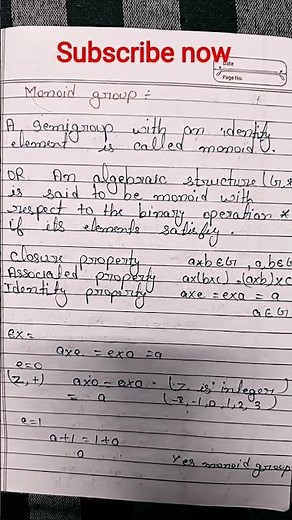 Subscribe now
Date
Page No.
Monoid group :-
A semigroup with an identity
element is called monoid.
OR An algebraic structure (G, *
is said to be monoid with
respect to the binary operation *
if its elements satisfy.
Closure property a*b∈G, a,b∈G
Associated property a*(b*c) = (a*b)*c
Identity property a*e = e*a = a
a∈G
ex=
a*e = e*a = a
e=0
(Z,+) a*0 = e*a - (Z is integer)
= a (-2,-1,0,1,2,3)
e=1
a+1 = 1+a
a Yes monoid group